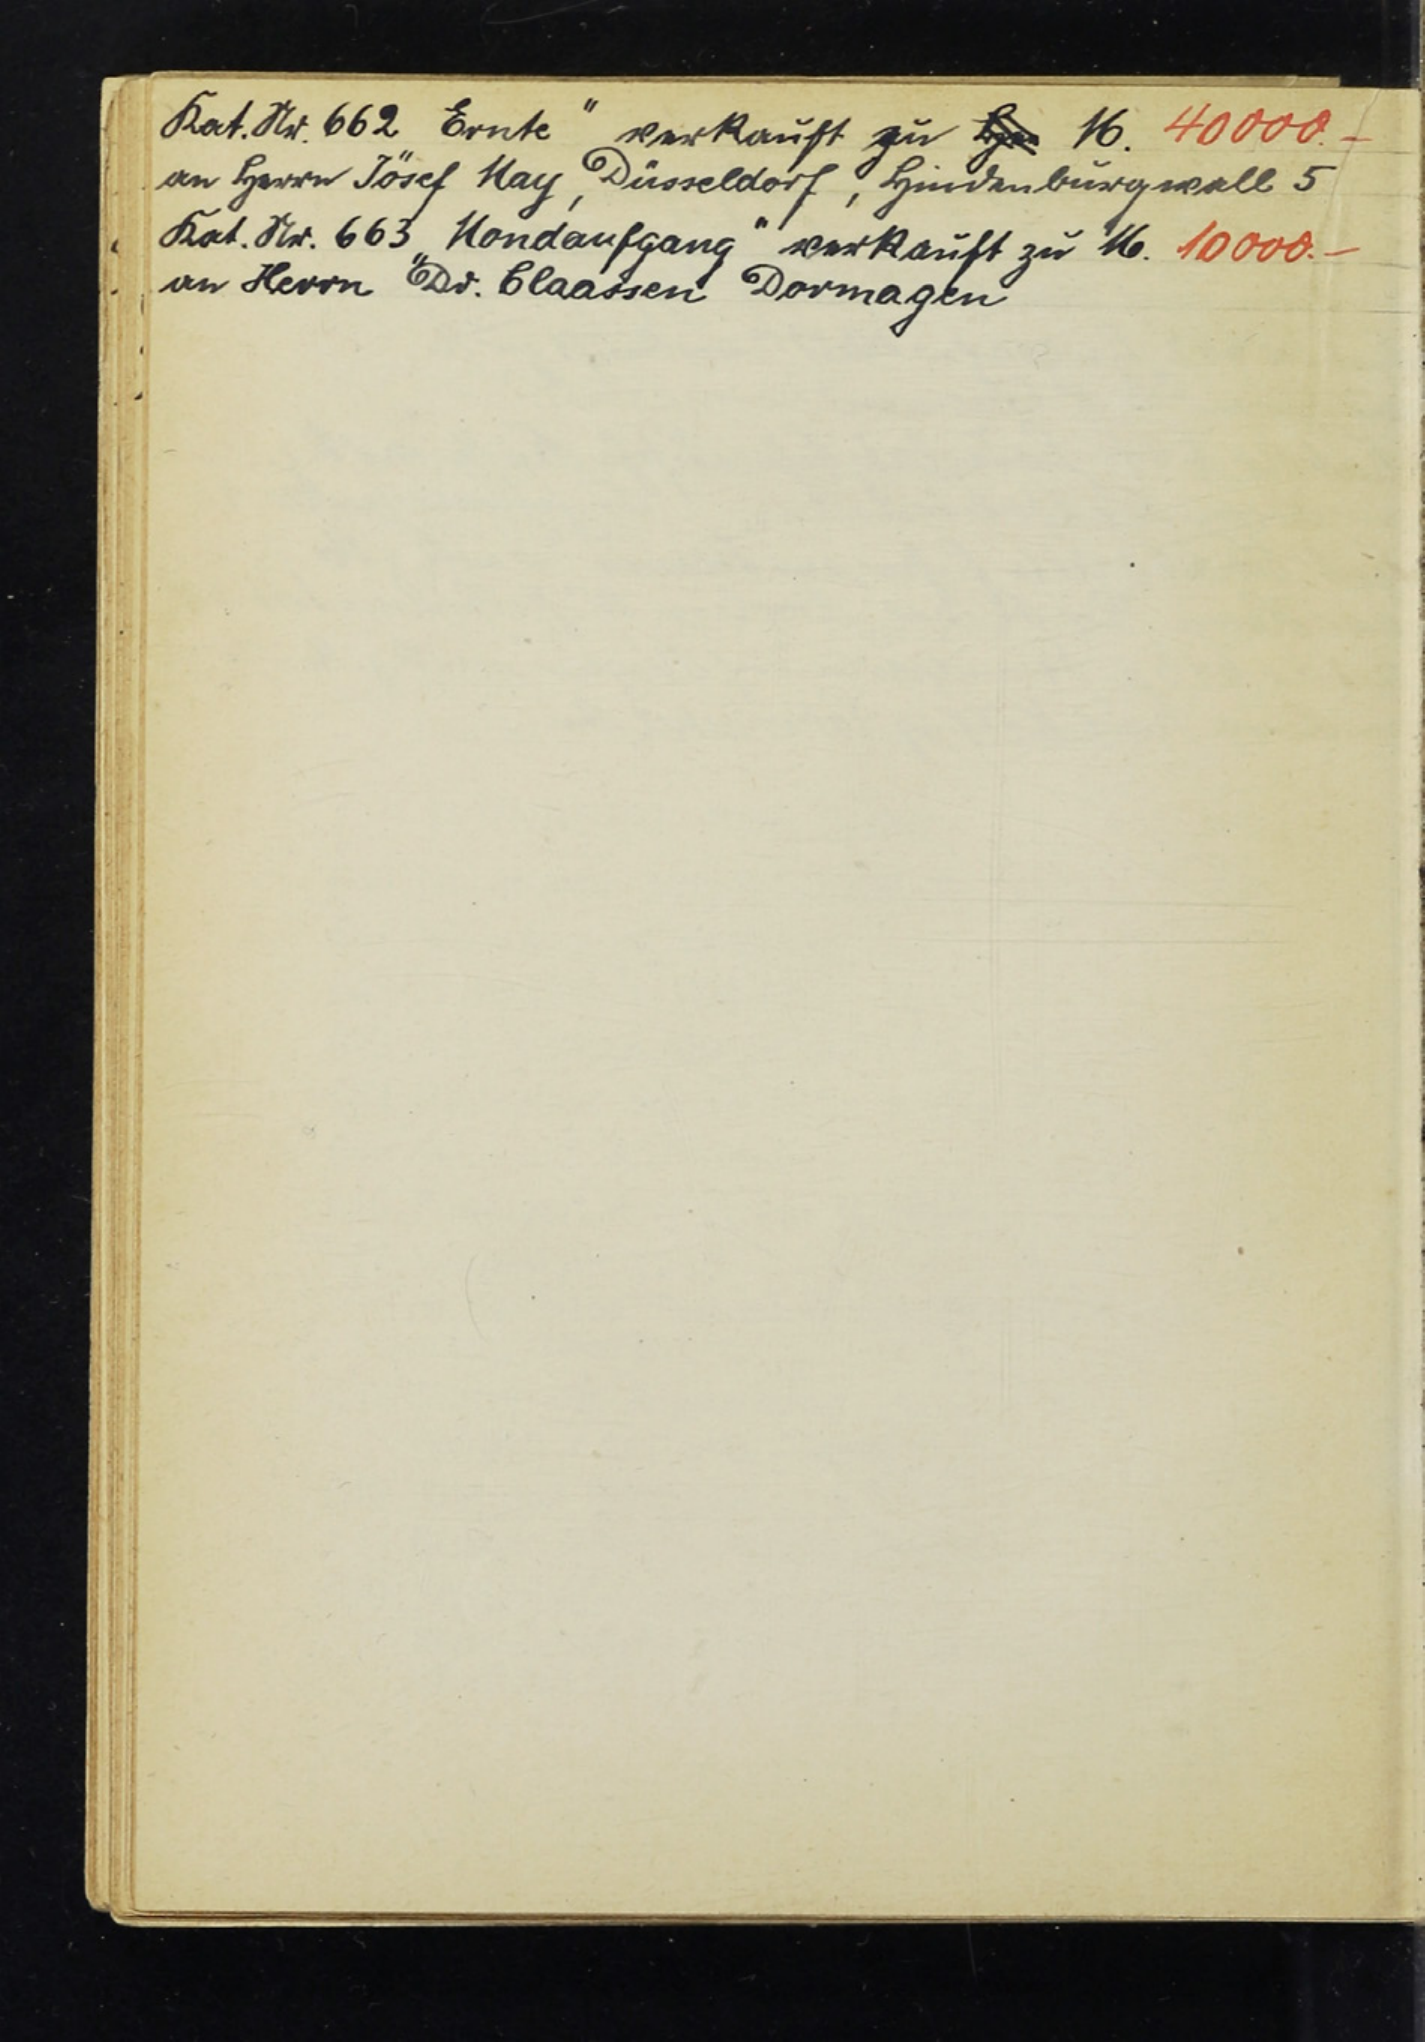 Kat. Nr. 662 Ernte" verkauft zu M. 40000.–
an Herrn Josef May, Düsseldorf, Hindenburgwall 5
Kat. Nr. 663 „Mondaufgang" verkauft zu M. 10000.–
an Herrn Dr. Claassen Dormagen